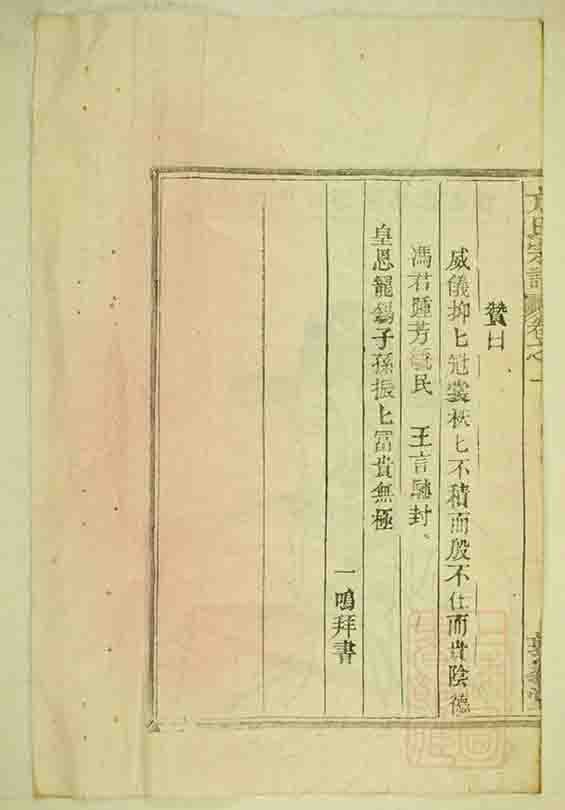 氏宗譜卷之一
贊曰
威儀抑匕冠裳秩匕不積而殷不仕而貴陰德
馮君踵芳民 王言馳封、
皇恩寵錫子孫振匕富貴無極
一鳴拜書